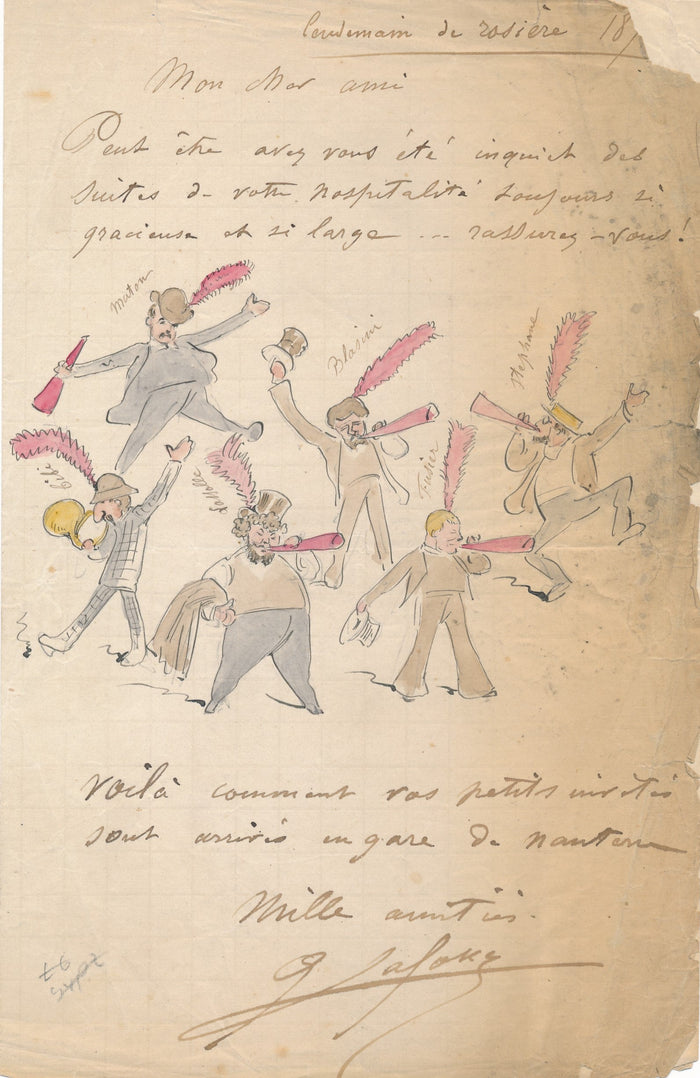 Lendemain de rosière 18
Mon cher ami
Peut être avez vous été inquiet des
suites de votre hospitalité toujours si
gracieuse et si large ... rassurez-vous!
Maton
Blasini
Stephane
Bibi
Fisher
voilà comment vos petits invités
sont arrivés en gare de nanterre
Mille amitiés.
G Lafosse